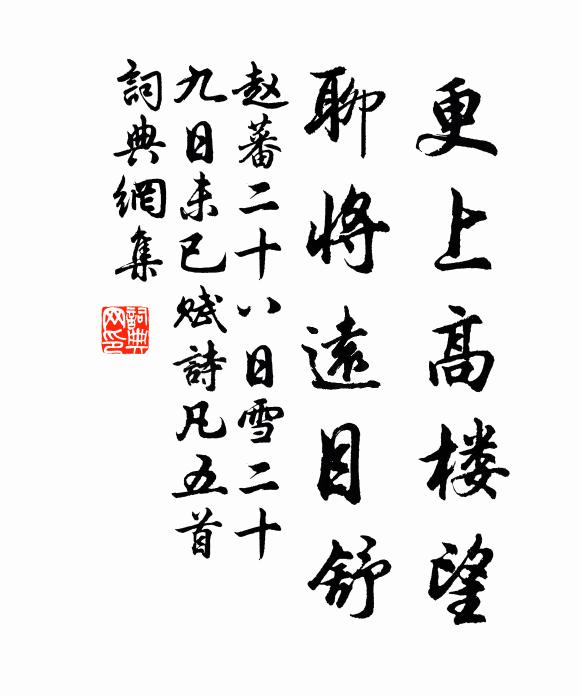 更上高楼望
聊將遠目舒
赵蕃二十八日雪二十
九日未已赋詩凡五首
詞典網集
詞典网印